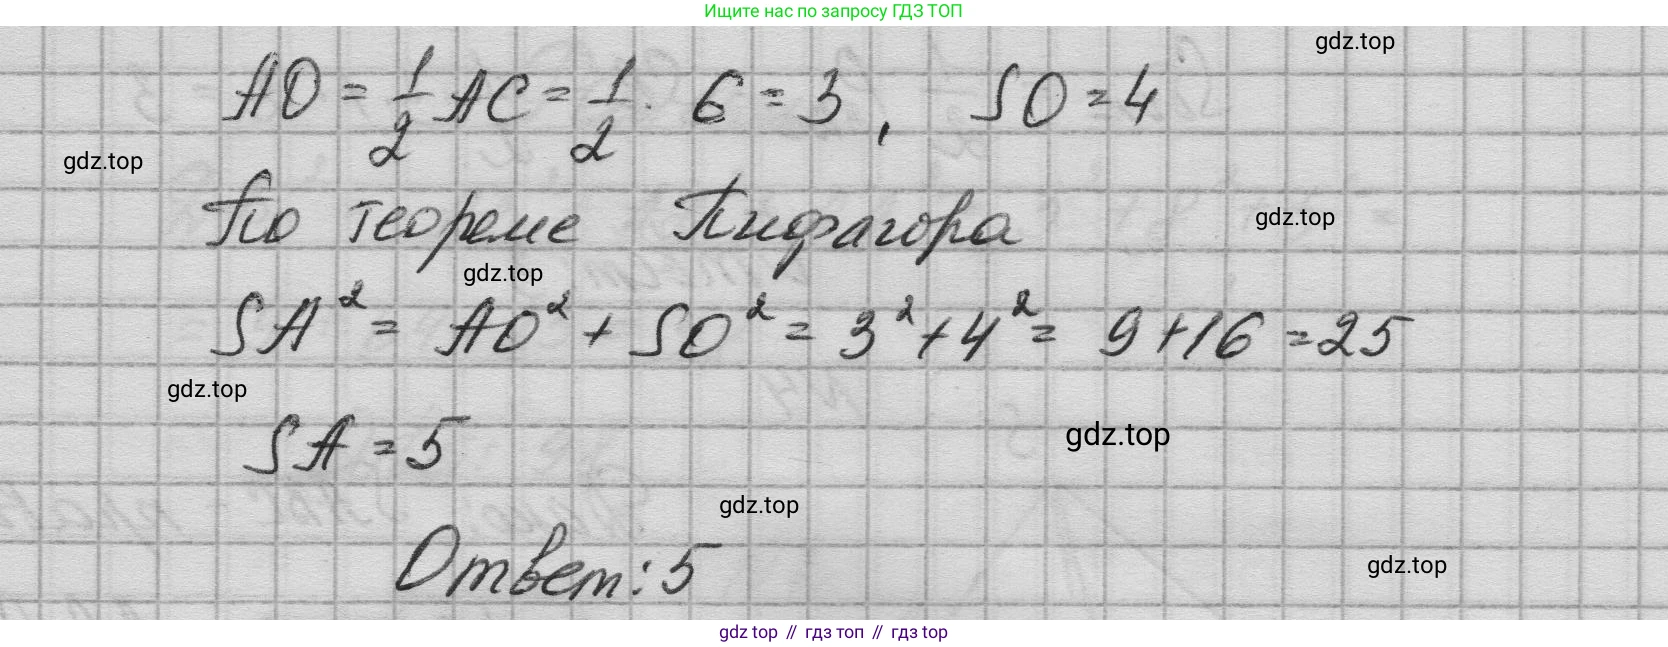 Ищите нас по запросу ГДЗ ТОП
gdz.top
AO = 1/2 AC = 1/2 · 6 = 3, SO = 4
gdz.top
По теореме Пифагора
gdz.top
gdz.top
SA² = AO² + SO² = 3² + 4² = 9 + 16 = 25
gdz.top
SA = 5
gdz.top
gdz.top
Ответ: 5
gdz.top
gdz top // гдз топ // гдз top